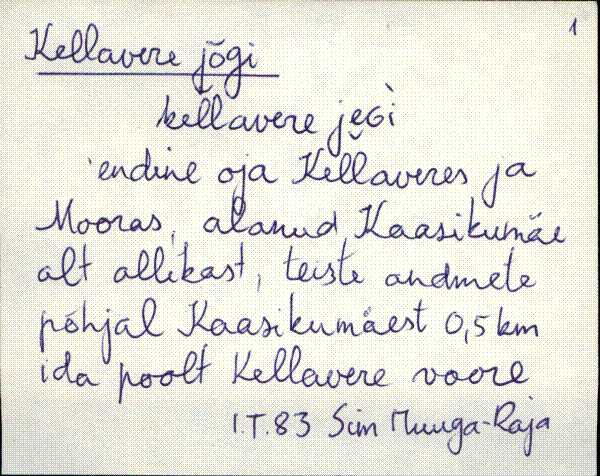 1
Kellavere jõgi
kellavere jeGì
endine oja Kellaveres ja
Mooras, alanud Kaasikumäe
alt allikast, teiste andmete
põhjal Kaasikumäest 0,5 km
ida poolt Kellavere voore
I.T.83 Sim Muuga-Roja